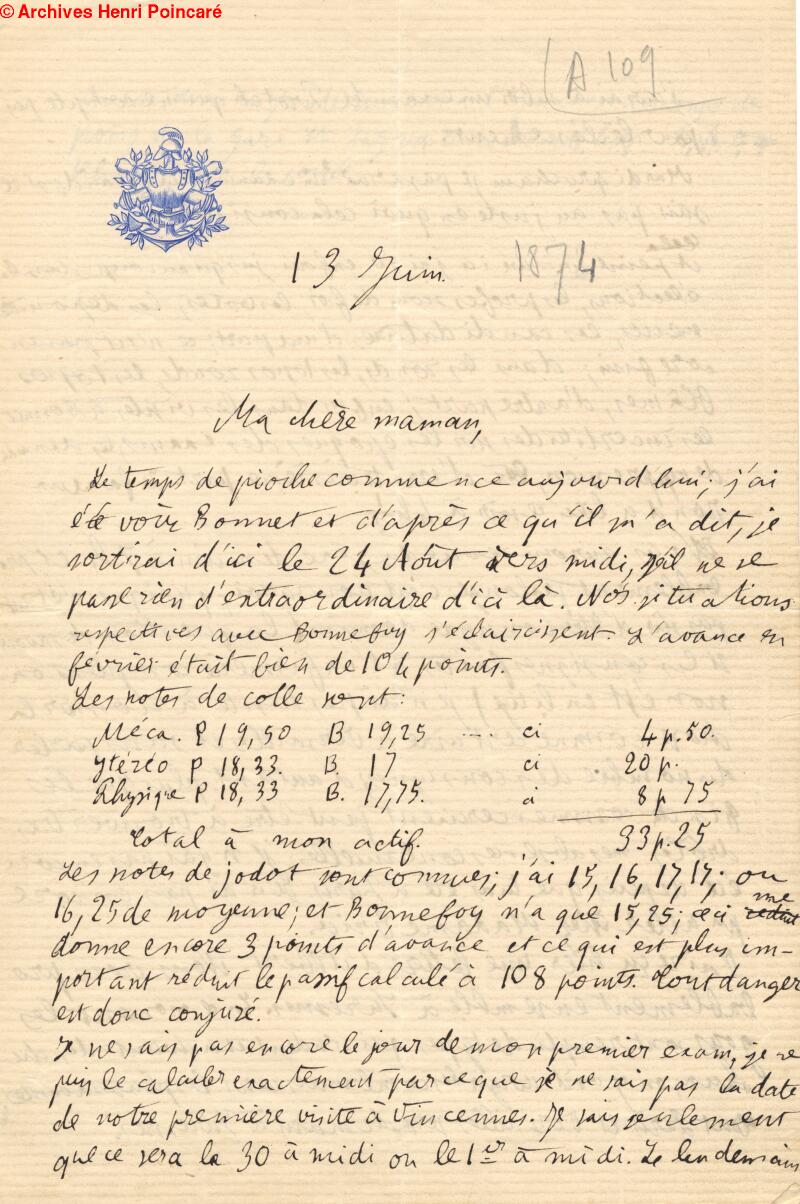 © Archives Henri Poincaré
A 109
13 Juin. 1874
Ma chère maman,
Le temps de pioche commence aujourd'hui; j'ai
été voir Bonnet et d'après ce qu'il m'a dit, je
sortirai d'ici le 24 Août vers midi, s'il ne se
passe rien d'extraordinaire d'ici là. Nos situations
respectives avec Bonnefoy s'éclaircissent. L'avance en
février était bien de 104 points.
Les notes de colle sont:
Méca. P 19,50 B 19,25 .... ci 4 p. 50.
Stéréo P 18,33. B. 17 ci 20 p.
Physique P 18,33 B. 17,75. ci 8 p 75
Total à mon actif. 33 p. 25
Les notes de jodot sont connues; j'ai 15, 16, 17, 17; ou
16,25 de moyenne; et Bonnefoy n'a que 15,25; ceci me
donne encore 3 points d'avance et ce qui est plus im-
portant réduit le passif calculé à 108 points. Tout danger
est donc conjuré.
Je ne sais pas encore le jour de mon premier exam, je ne
puis le calculer exactement parceque je ne sais pas la date
de notre première visite à Vincennes. Je sais seulement
que ce sera le 30 à midi ou le 1er à midi. Le lendemain